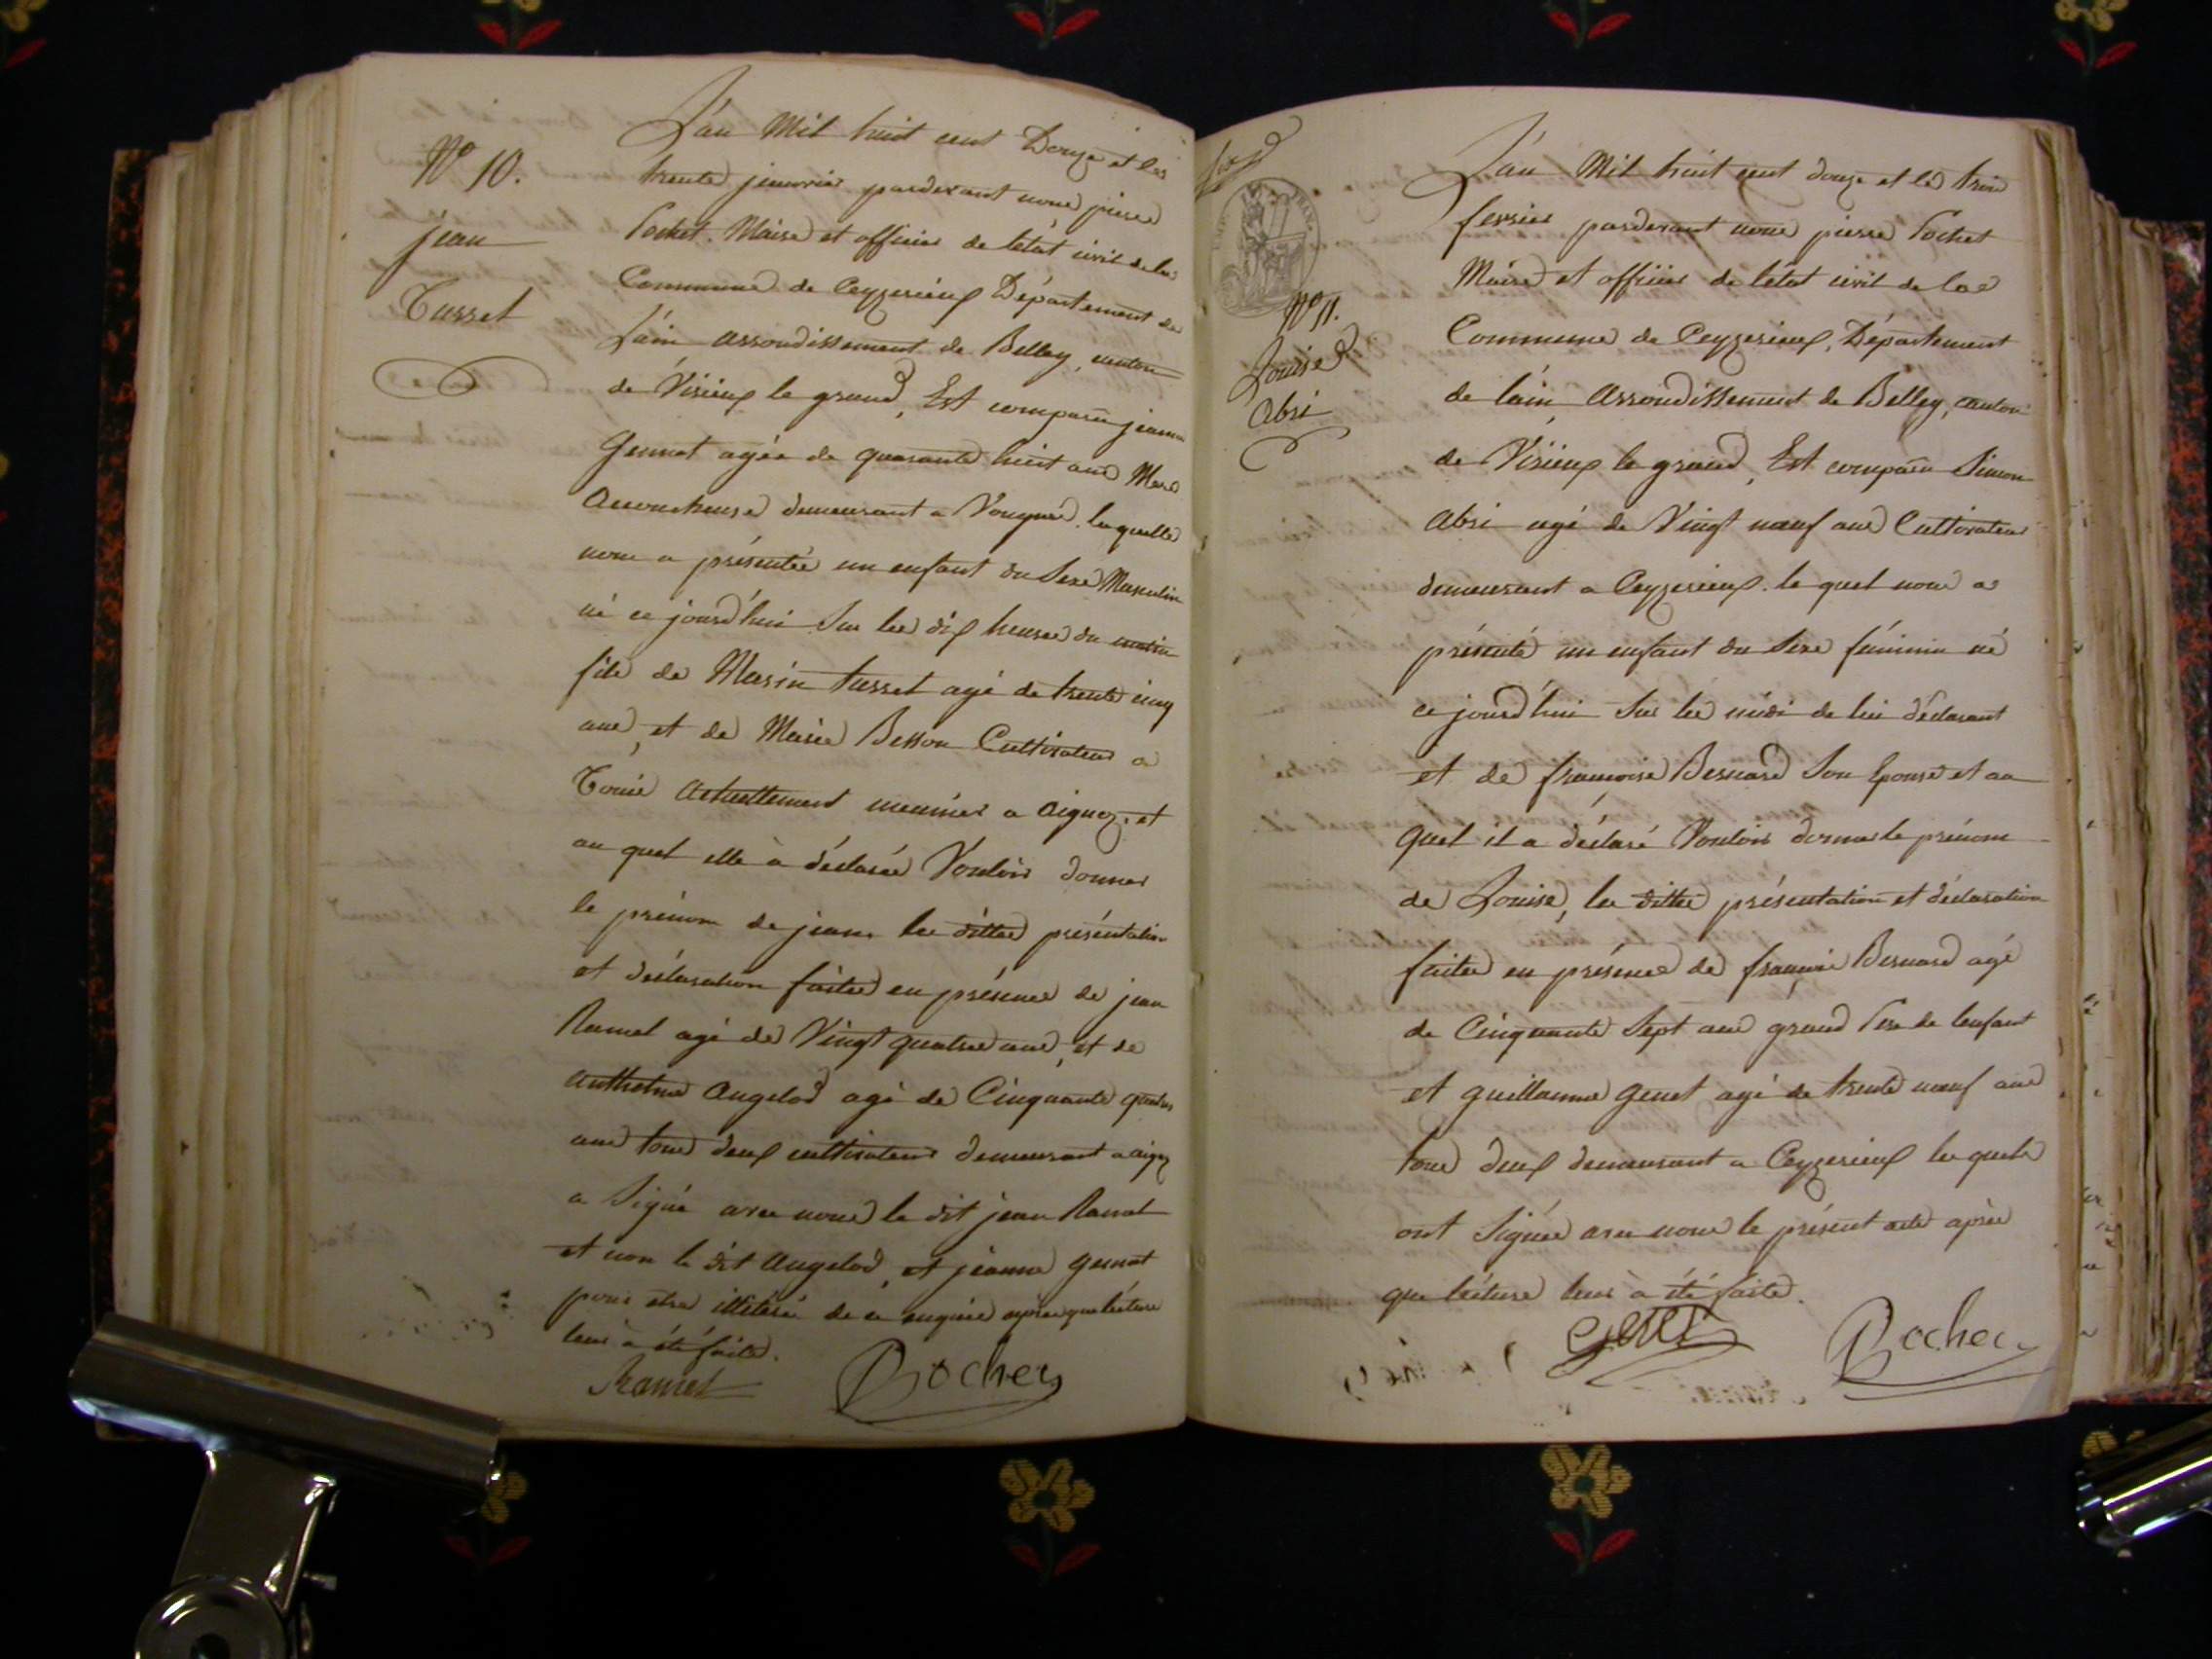 N° 10.
jean
Tusset
L'an Mil huit cent Douze et les
trente janvier pardevant nous pierre
Pochet Maire et officier de l'état civil de la
Commune de Ceyzerieux Département de
L'ain arrondissement de Belley, canton
de Virieux le grand, Est comparu jeanne
Gennet agée de quarante huit ans Mere
Accoucheuse demeurant a Vongnes. laquelle
nous a présentée un enfant du Sexe Masculin
né ce jourd'hui Sur les dix heures du matin
fils de Marin tusset agé de trente cinq
ans, et de Marie Besson Cultivateur a
actuellement meunier a aignoz. et
au quel elle à déclarée Vouloir donner
le prénom de jean les dittes présentation
et déclaration faites en présence de jean
Ramel agé de Vingt quatre ans, et de
anthelme Angelod agé de Cinquante quatre
ans tous deux cultivateurs demeurant a aignoz
a Signé avec nous le dit jean Ramel
et non le dit Angelod, et jeanne genet
pour etre illiteré de ce enquis apres que lecture
leur à été faite.
Ramel
N° 11.
Louise
Abri
L'an Mil huit cent douze et le trois
fevrier pardevant nous pierre Pochet
Maire et officier de l'état civil de la
Commune de Ceyzerieux, Département
de l'ain Arrondissement de Belley, canton
de Virieux le grand, Est comparu Simon
Abri agé de Vingt nœuf ans Cultivateur
demeurant a Ceyzerieux. le quel nous a
présenté un enfant du Sexe féminin né
ce jourd'hui Sur les midi de lui déclarant
et de françoise Bernard Son Epouse et au
quel il a déclaré Vouloir donner le prénom
de Louise, les dittes présentation et déclaration
faites en présence de françois Bernard agé
de Cinquante Sept ans grand Pere de lenfant
et guillaume genet agé de trente nœuf ans
tous deux demeurant a Ceyzerieux les quels
ont Signée avec nous le présent acte après
que lecture leur à été faite.